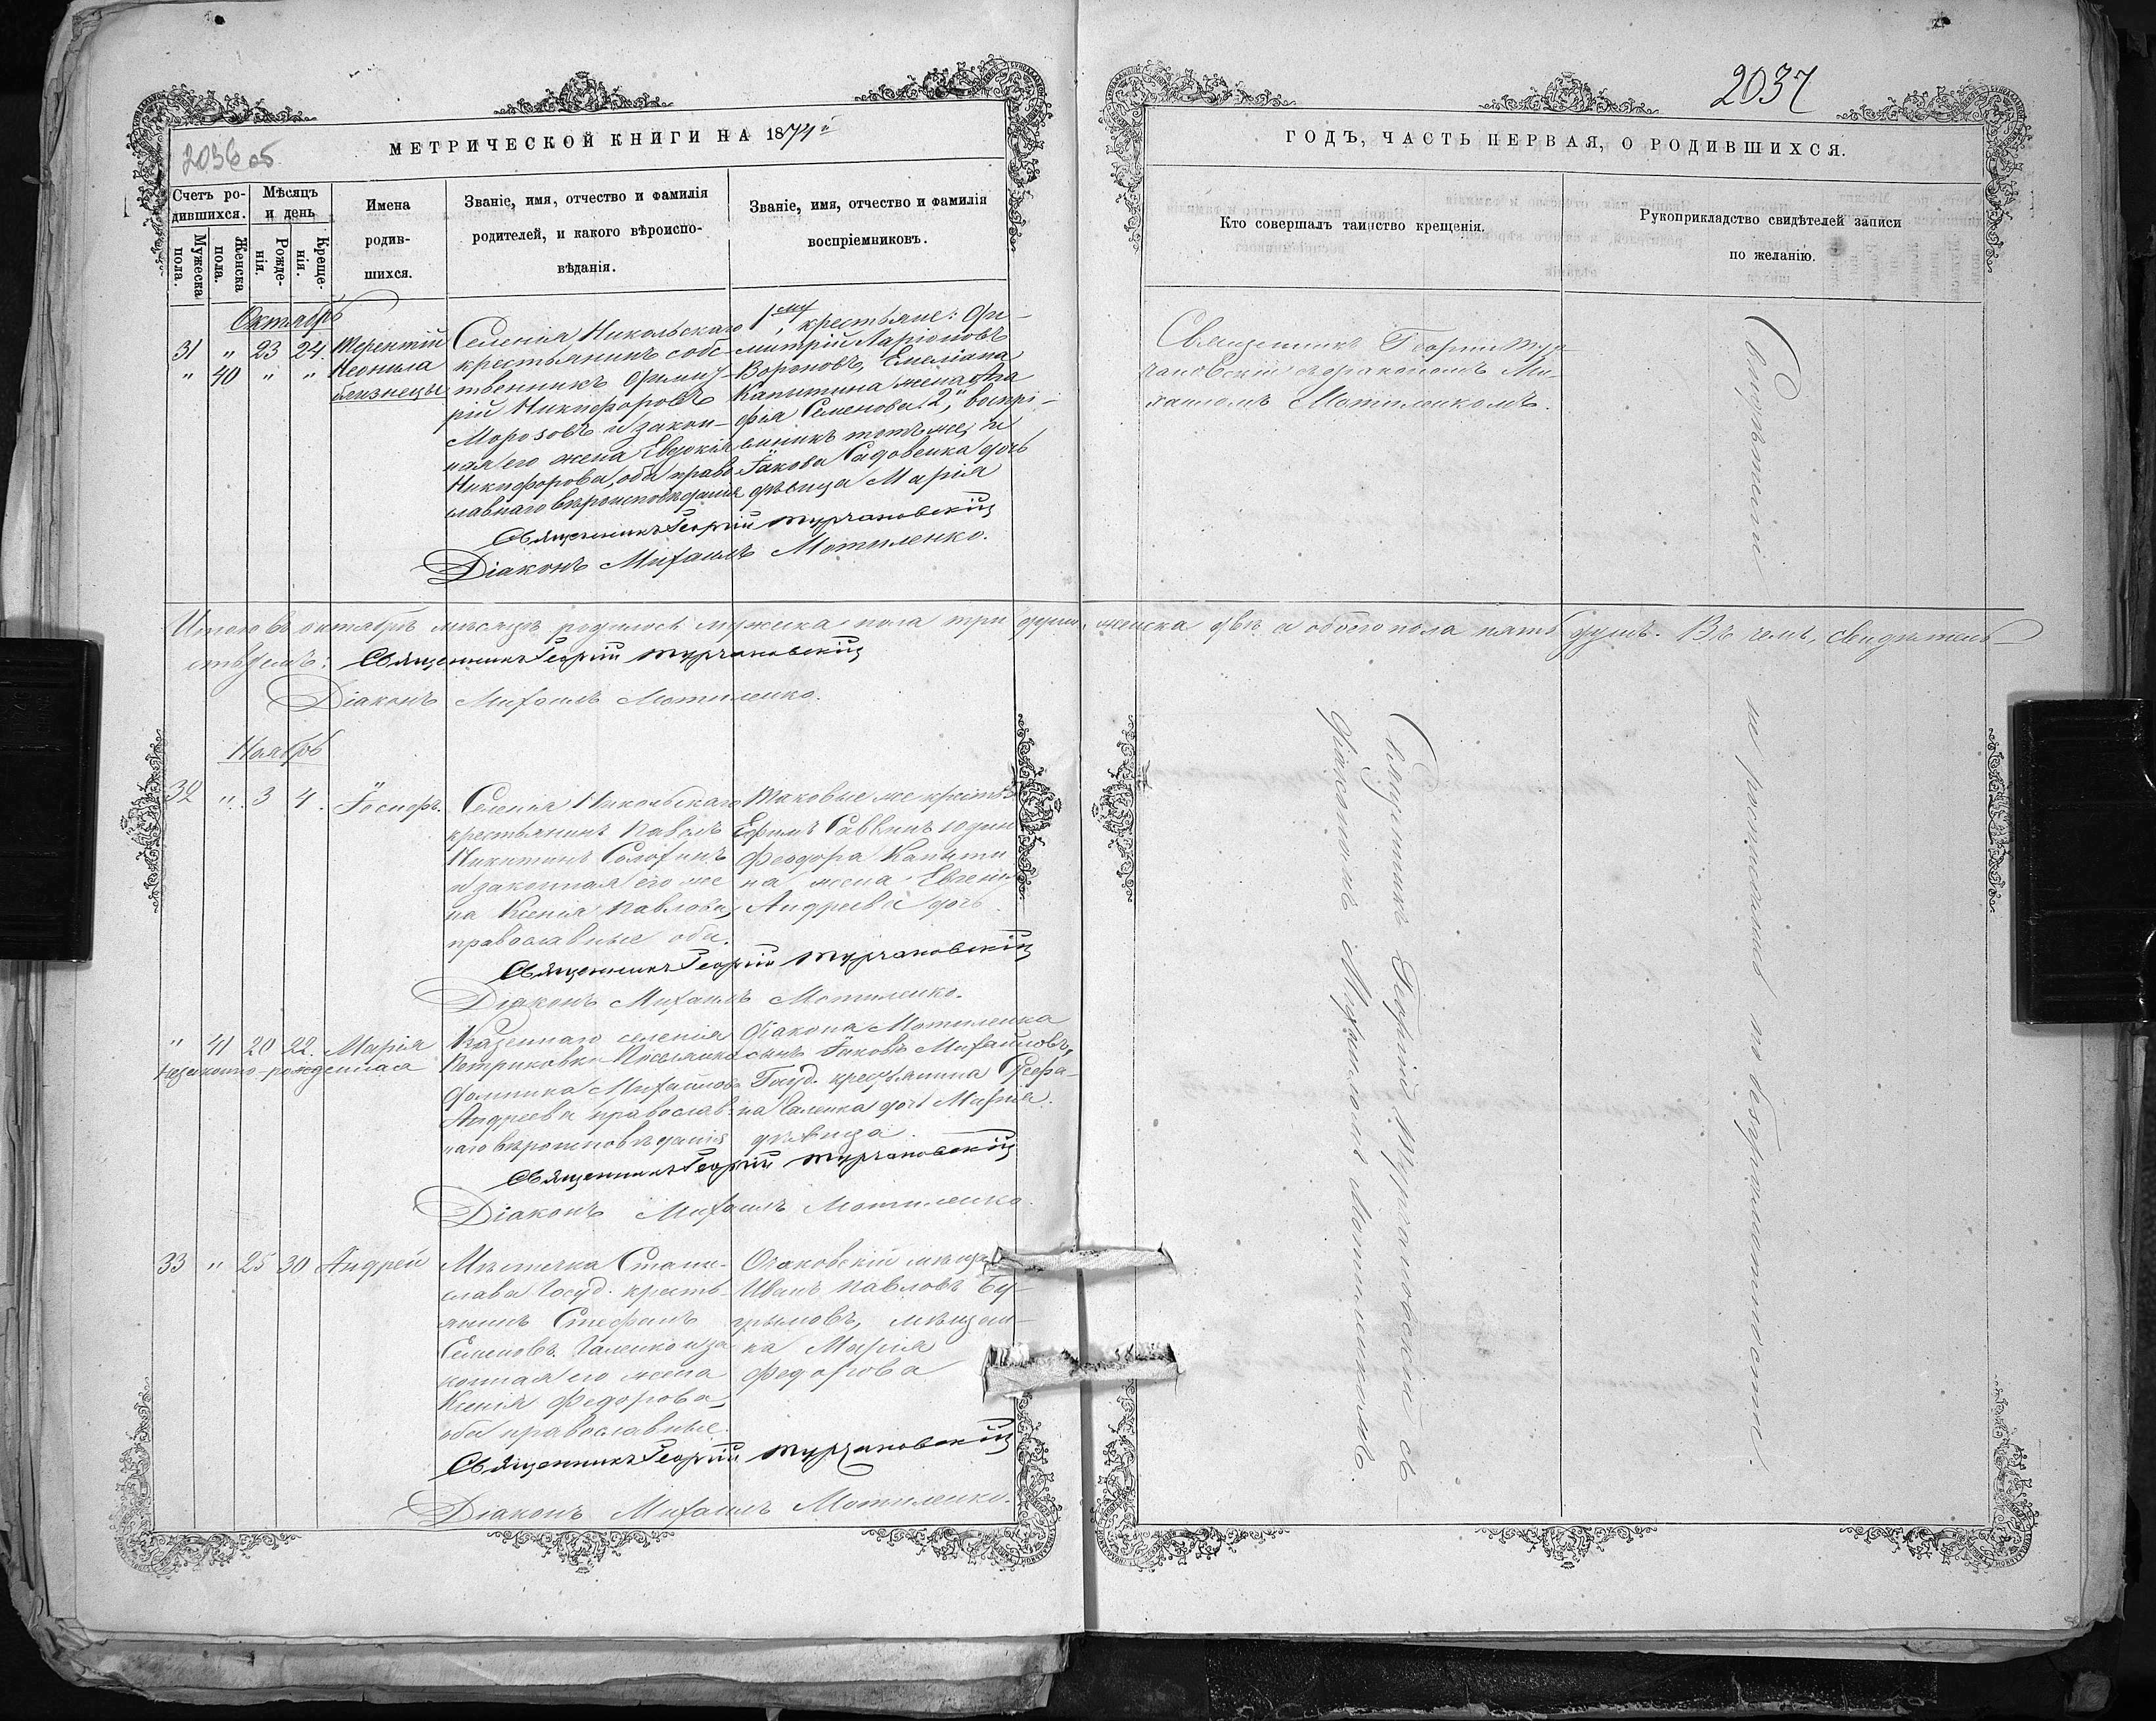 2036 об
МЕТРИЧЕСКОЙ КНИГИ НА 1874й
Счетъ родившихся.
Мѣсяцъ и день
Имена родившихся.
Званіе, имя, отчество и фамилія
родителей, и какого вѣроиспо-
вѣданія.
Званіе, имя, отчество и фамилія
воспріемниковъ.
Мужеска пола.
Женска пола.
Рожде-нія.
Креще-нія.
Октябрь
31 " 23 24. Терентій
" 40 " " Неонила
близнецы
Селенія Никольскаго
крестьянинъ собс-
твенникъ Димит-
рій Никифоровъ
Морозовъ и закон-
ная его жена Евдокія
Никифорова, оба право-
славнаго вѣроисповѣданія
1му, крестьяне: Ди-
митрій Ларіоновъ
Вороновъ, Емеліана
Капытина жена Ага
фія Семенова. 2й, воспрі-
емникъ тотъ же, и
Іакова Садовенка дочь
дѣвица Марія
Священникъ Георгій Турчановскій
Діаконъ Михаилъ Мотиленко.
Итого въ октябрѣ мѣсяцѣ родилось мужеска пола три души, женска двѣ, а обоего пола пять душъ. Въ чемъ, свидѣтель-
ствуемъ: Священникъ Георгій Турчановскій
Діаконъ Михаилъ Мотиленко.
Ноябрь
32 " 3 4. Іосифъ.
Селенія Никольскаго
крестьянинъ Павелъ
Никитинъ
и законная его же
на Ксенія Павлова,
православные оба.
Таковые же крестья
Ефимъ Саввинъ Юдин
Феодора Капыти
на жена Евгенія
Андреева дочь
Священникъ Георгій Турчановскій
Діаконъ Михаилъ Мотиленко.
" 41 20 22. Марія
незаконно-рожденная
Казеннаго селенія
Петриковки
Михаилова
Андреева православ-
наго вѣроисповѣданія
Діакона Мотиленка
сынъ Іаковъ Михаиловъ,
Госуд. крестьянина Стефа-
на Галенка дочь Марія.
дѣвица
Священникъ Георгій Турчановскій
Діаконъ Михаилъ Мотиленко.
33 " 25 30 Андрей
Мѣстечка Стани-
слава Госуд. кресть-
янинъ Стефанъ
Семеновъ Галенко и за
конная его жена
Ксенія Федорова,
оба православные.
Очаковскій мѣща
Иванъ Павловъ Бу-
грымовъ, мѣщан-
ка Марія
Федорова
Священникъ Георгій Турчановскій
Діаконъ Михаилъ Мотиленко.
2037
ГОДЪ, ЧАСТЬ ПЕРВАЯ, О РОДИВШИХСЯ.
Кто совершалъ таинство крещенія.
Рукоприкладство свидѣтелей записи
по желанію.
Священникъ Георгій Тур-
чановскій съ діакономъ Ми-
хаиломъ Мотиленкомъ.
Священникъ Георгій Турчановскій съ
діакономъ Михаиломъ Мотиленкомъ.
Свидѣтели
не росписались по безграмотности.